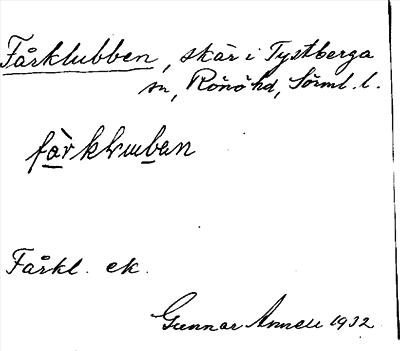 Fårklubben, skär i Tystberga
sn, Rönö hd, Sörml. l.
Fårkl. ek.
Gunnar Annell 1932.